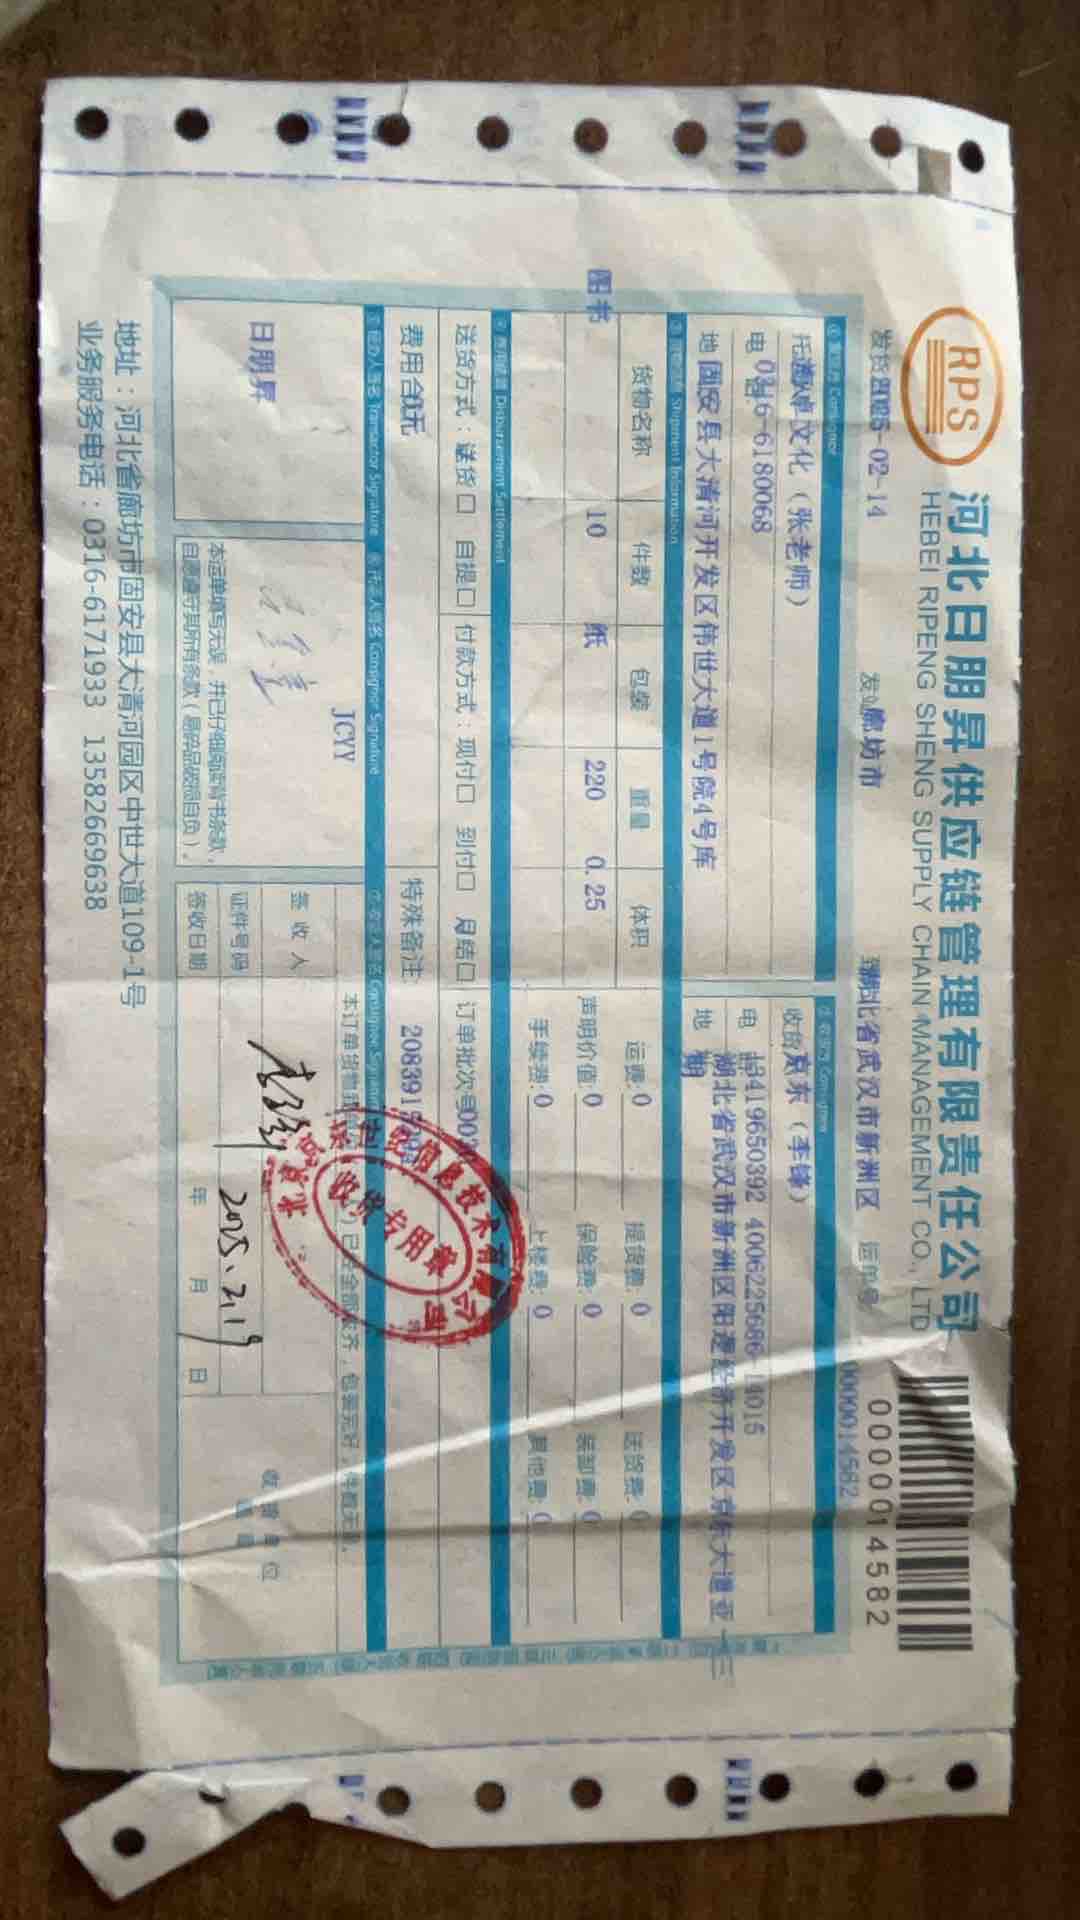 RPS
河北日朋昇供应链管理有限责任公司
HEBEI RIPENG SHENG SUPPLY CHAIN MANAGEMENT CO., LTD
0000014582
发货 2025-02-14 发 廊坊市 湖北省武汉市新洲区 运单号 0000014582
Consignor
卓文化（张老师）
电 0316-6180068
地 固安县大清河开发区伟世大道1号院4号库
Consignee
收货 京东（李锋）
电 13419650392 4006225686-14015
地 湖北省武汉市新洲区阳逻经济开发区京东大道亚一三期
Shipment Information
货物名称 件数 包装 重量 体积
图书 10 纸 220 0.25
运费: 0 提货费: 0 送货费: 0
声明价值: 0 保险费: 0 装卸费: 0
手续费: 0 上楼费: 0 其他费: 0
费用结算 Disbursement Settlement
送货方式：送货□ 自提□ 付款方式：现付□ 到付□ 月结□ 订单批次号
费用合 无 特殊备注:
⑤经办人签名 Transactor Signature ⑥托运人签名 Consignor Signature Consignee Signature
日朋昇
JCYY
本运单填写无误，并已仔细阅读背书条款，
自愿遵守其所有条款（易碎品破损自负）。
本订单货物 已 全部 齐，包装完好，件数无
签收人
证件号码
签收日期 年 月 日
2025.2.19
收货单位
收货专用章
地址：河北省廊坊市固安县大清河园区中世大道109-1号
业务服务电话：0316-6171933 13582669638